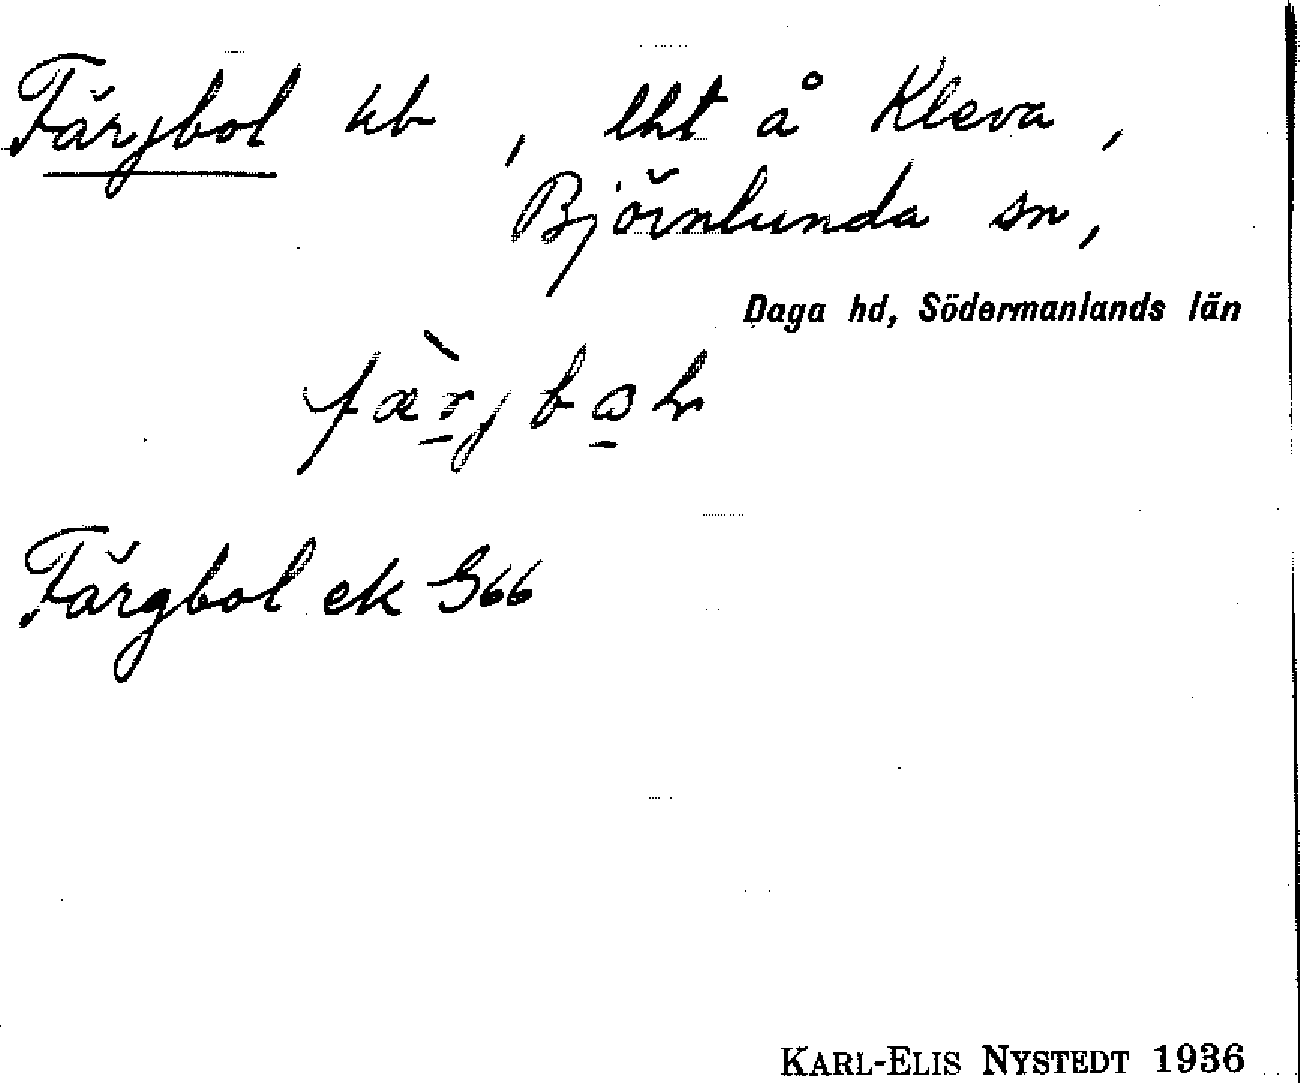 Färjbol ub, lht å Kleva,
Björnlunda sn,
Daga hd, Södermanlands län
Färgbol ek G66
KARL-ELIS NYSTEDT 1936